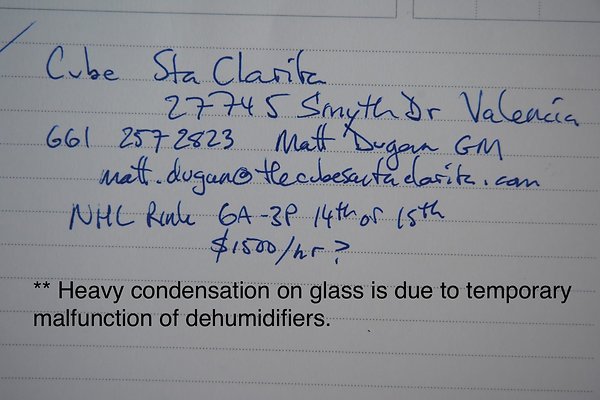 Cube Sta Clarita
27745 Smyth Dr Valencia
661 257 2823 Matt Dugan GM
matt.dugan@thecubesantaclarita.com
NHL Rink 6A-3P 14th or 15th
$1500/hr?
** Heavy condensation on glass is due to temporary
malfunction of dehumidifiers.